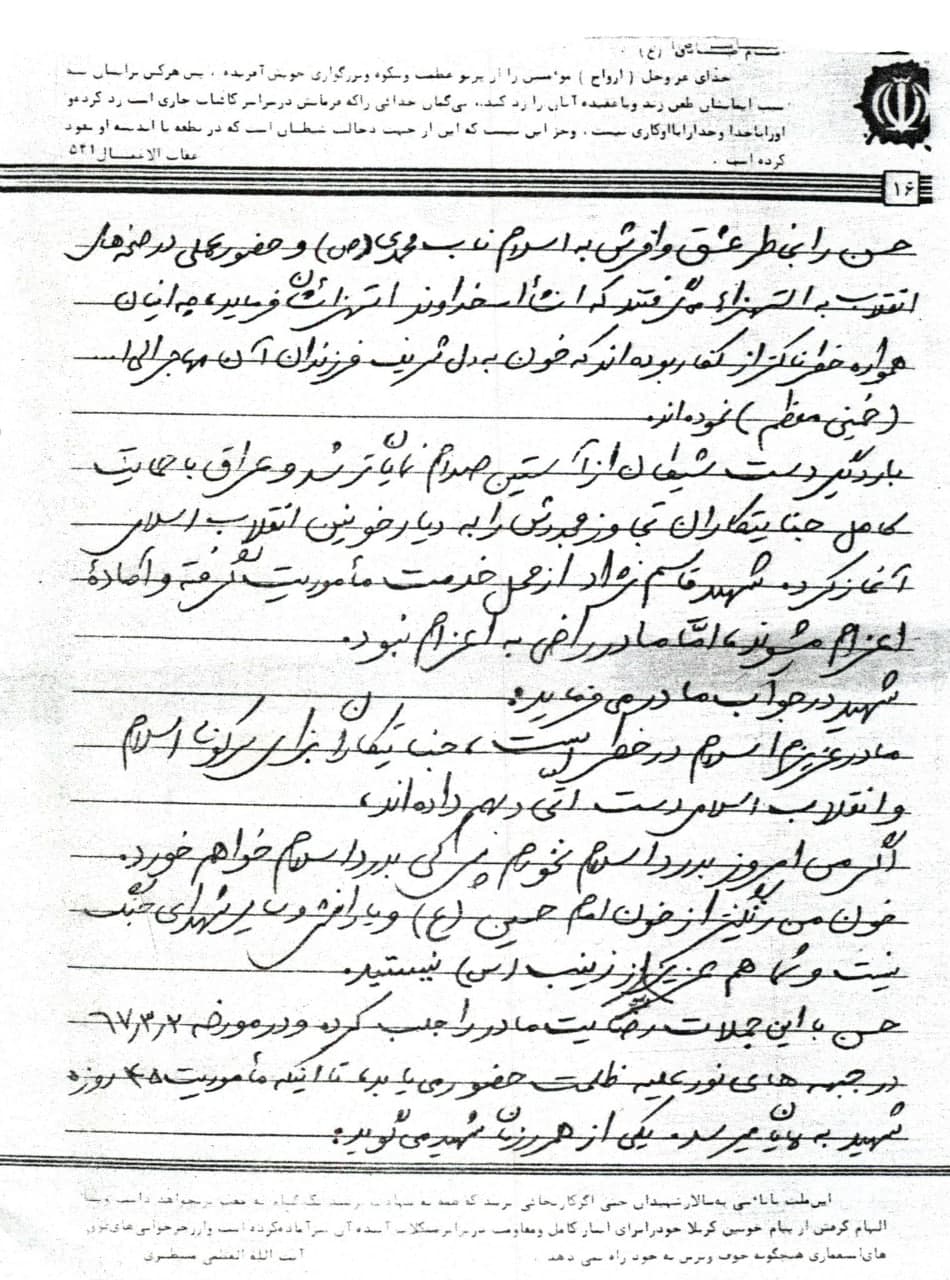 امام صادق (ع)
خدای عز وجل (ارواح) مؤمنین را از پرتو عظمت وشکوه وبزرگواری خویش آفریده ، پس هرکس براستان به
سبب ایمانشان طعن زند ویا عقیده آنان را رد کند، بی‌گمان خدائی راکه فرمانش درسراسر کائنات جاری است رد کرده و
اورا باخدا وخدارا بااوکاری نیست ، وجز این نیست که این از جهت دخالت شیطان است که در نطفه یا اندیشه او نفوذ
کرده است .
عقاب الاعمال ۵۴۱
۱۶
حسن را بخاطر عشق وافرش به اسلام ناب محمدی (ص) و حضور عملی در صحنه‌های
انقلاب به استهزاء می‌گرفتند که انشأا... خداوند استهزائشان فرماید، چه اینان
همواره خطرناکتر از کفار بوده‌اند که خون به دل شریف فرزندان آن مهاجر الی ا...
(خمینی معظم) نموده‌اند.
بار دیگر دست شیطان از آستین صدام نمایانتر شد و عراق با حمایت
کامل جنایتکاران تجاوز مجددش را به دیار خونین انقلاب اسلامی
آغاز کرد. شهید قاسم نژاد از محل خدمت مأموریت گرفته و آمادهٔ
اعزام میشوند، امّا مادر راضی به اعزام نبود.
شهید در جواب مادر می فرماید:
مادر عزیزم اسلام در خطر است، جنایتکاران برای سرکوب اسلام
و انقلاب اسلامی دست اتحاد بهم داده‌اند،
اگر من امروز بدرد اسلام نخورم پس کی بدرد اسلام خواهم خورد.
خون من رنگینتر از خون امام حسین (ع) و یارانش و سایر شهدای جنگ
نیست و شما هم عزیزتر از زینب (س) نیستید.
حسن با این جملات رضایت مادر را جلب کرده و در مورخه ۶۷،۳،۲
در جبهه های نور علیه ظلمت حضور می یابد، تا اینکه مأموریت ۴۵ روزه
شهید به پایان میرسد. یکی از همرزمان شهید می گوید:
این ملت با تأسی به سالار شهیدان حتی اگر کار بجائی برسد که همه به شهادت برسند
الهام گرفتن از پیام خونین کربلا خود را برای ایثار کامل ومقاومت در برابر مشکلات آینده آماده کرده است و از رجزخوانی های قدرت
های استعماری هیچگونه خوف وترس به خود راه نمی دهد .
آیت الله العظمی منتظری